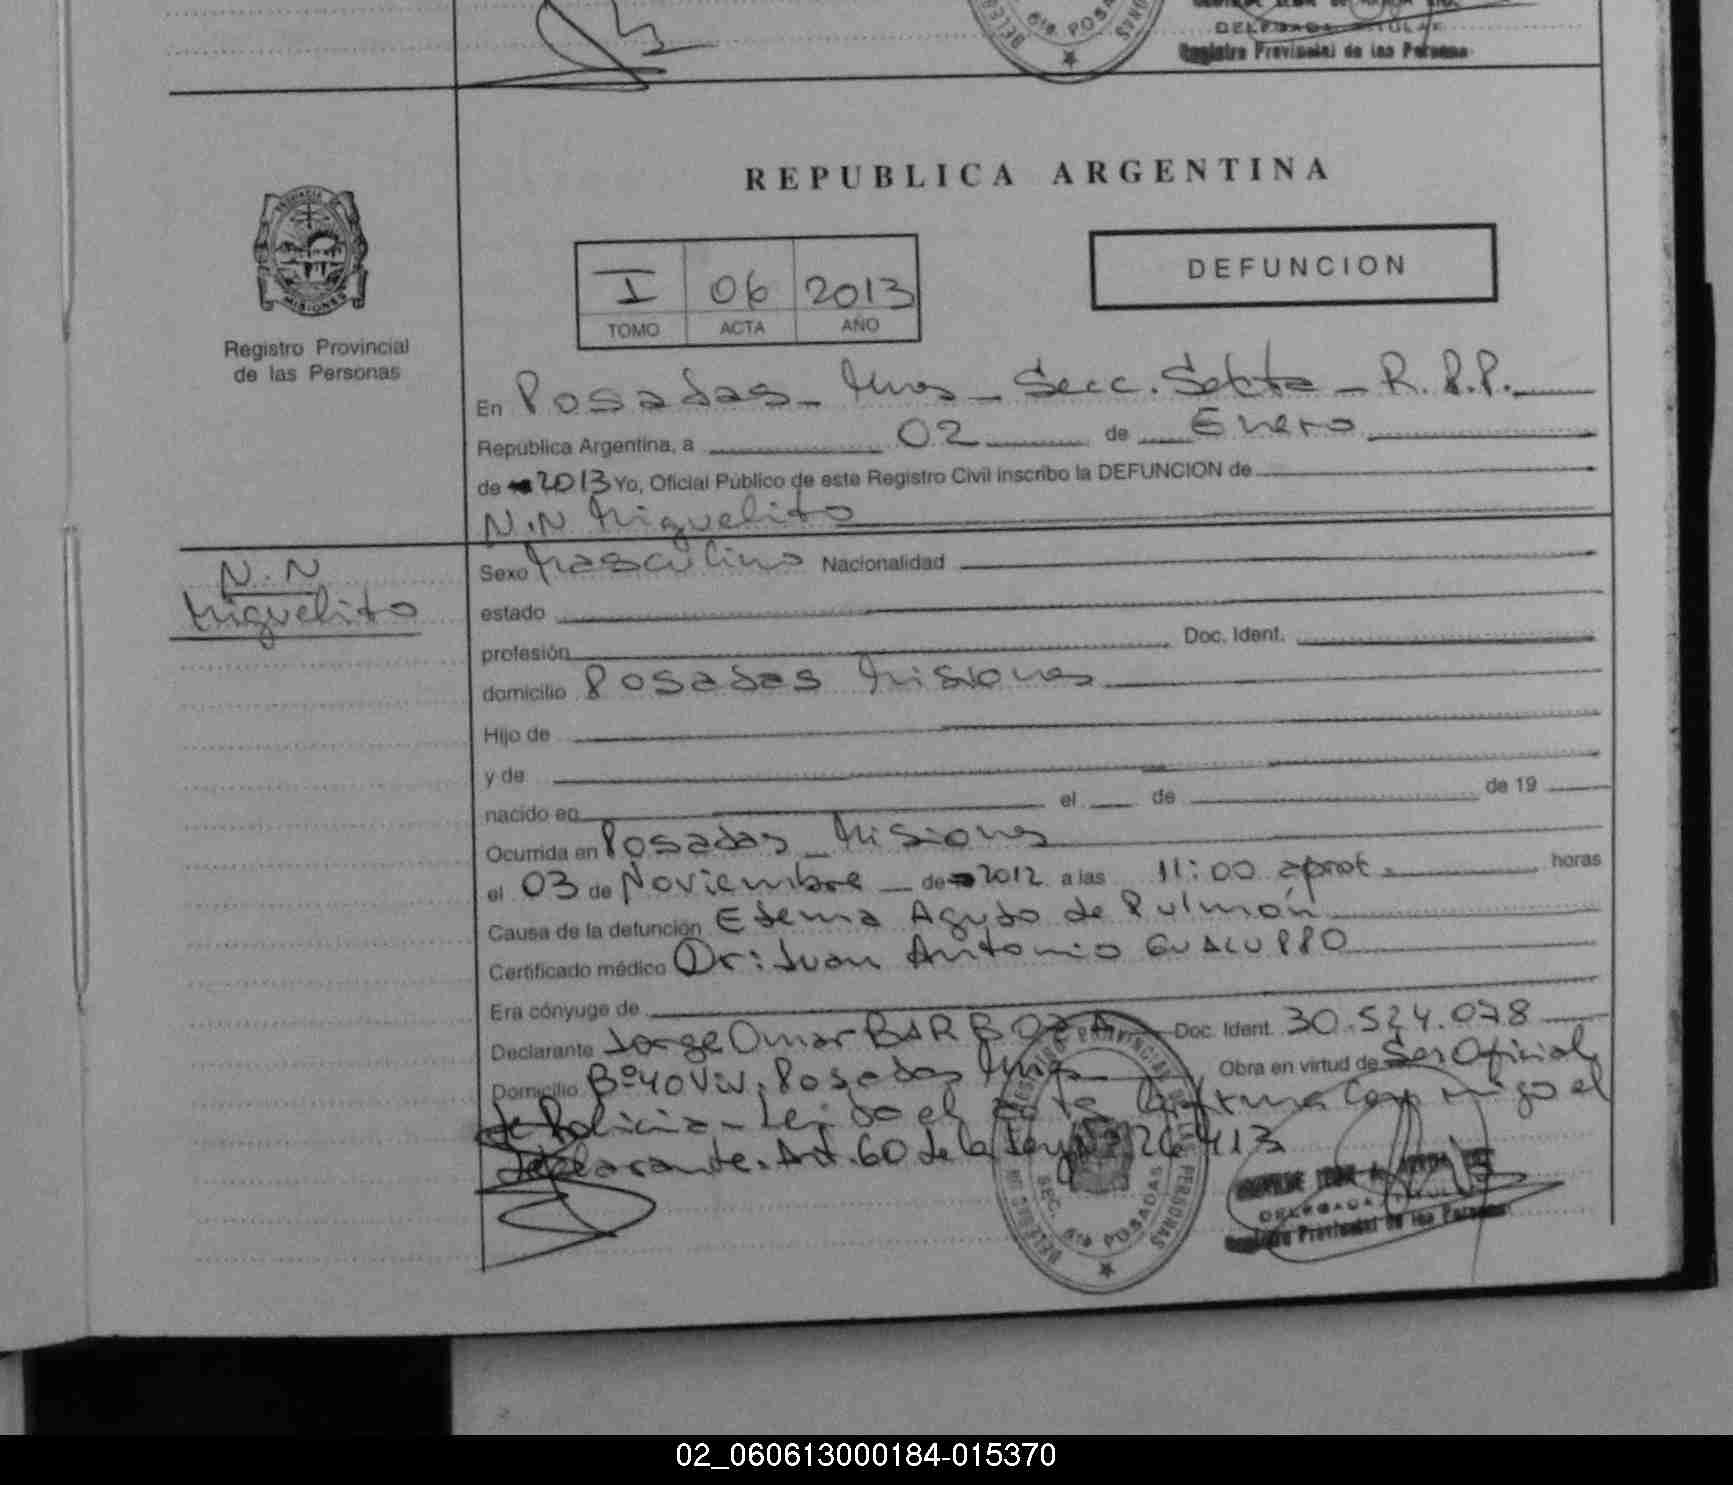 DELEGADA TITULAR
6ta. POSA
Registro Provincial de las Personas
REPUBLICA ARGENTINA
PROVINCIA DE
MISIONES
Registro Provincial
de las Personas
I 06 2013
TOMO ACTA AÑO
DEFUNCION
En Posadas - Mnes - Secc. Sexta - R.P.P.
Republica Argentina, a 02 de Enero
de 2013 Yo, Oficial Público de este Registro Civil inscribo la DEFUNCION de
N.N Miguelito
N.N
Miguelito
Sexo Masculino Nacionalidad
estado
profesión Doc. Ident.
domicilio Posadas Misiones
Hijo de
y de
nacido en el de de 19
Ocurrida en Posadas - Misiones
el 03 de Noviembre de 2012 a las 11:00 aprox. horas
Causa de la defunción Edema Agudo de Pulmón
Certificado médico Dr: Juan Antonio GUALUPPO
Era cónyuge de
Declarante Jorge Omar BARBOZA Doc. Ident. 30.524.078
Domicilio Bº 40 Viv. Posadas Mnes Obra en virtud de Ser Oficial
de Policia - Leido el acta la firma con migo el
declarante. Art. 60 de la Ley Nº 26.413
SEC. 6ta POSADAS
DELEGADA TITULAR
Registro Provincial de las Personas
02_060613000184-015370